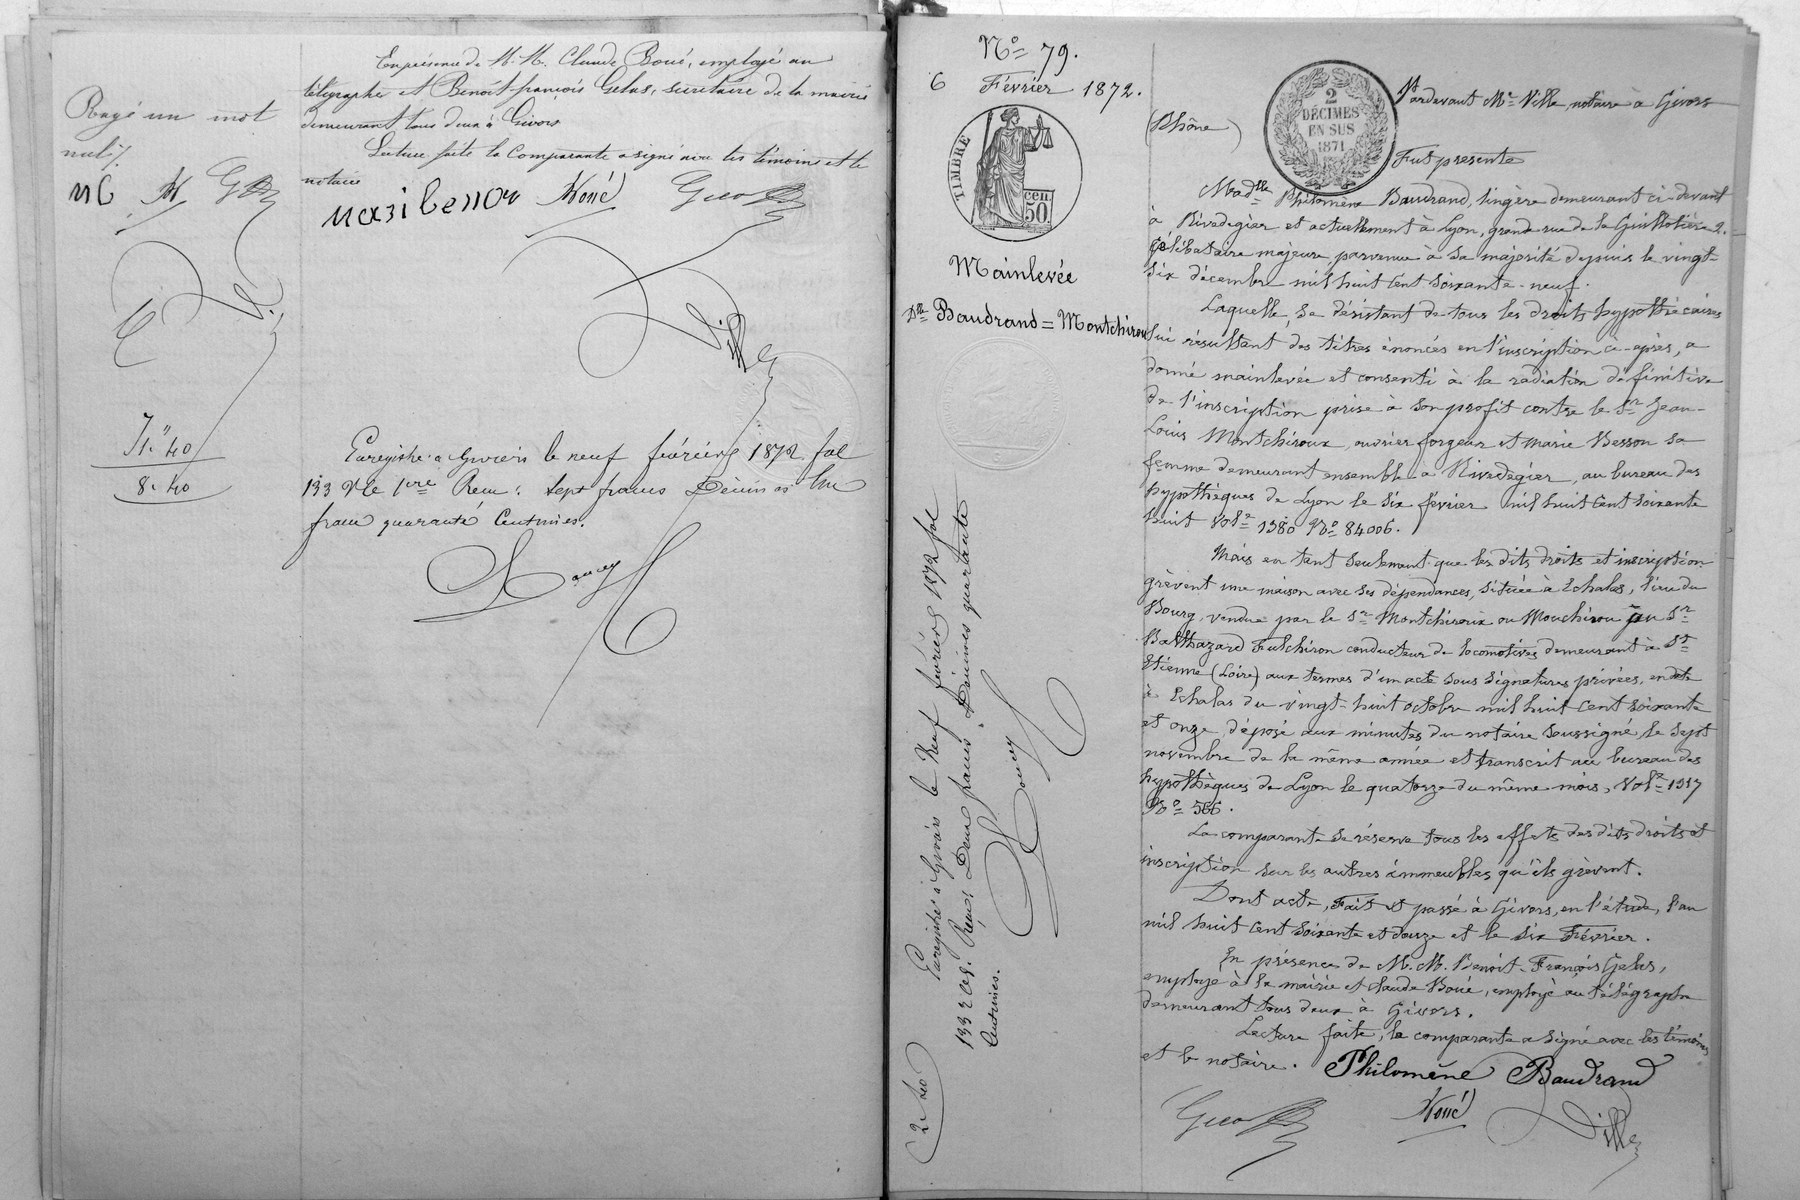 En présence de M.M. Claude Boué, employé au
télégraphe et Benoît-françois Gelas, secrétaire de la mairie
demeurant tous deux à Givors
Lecture faite la Comparante a signé avec les témoins et le
notaire
Rayé un mot
nul
Boué
Ville
7 " 1. 40
8. 40
Enregistré à Givors le neuf février 1872 fol
133 Vle 1re Reçu: sept francs Décimes Un
franc quarante Centimes.
No 79.
6 Février 1872.
TIMBRE
cen.
50.
Mainlevée
Dlle Baudrand = Montchiroux
Enregistré à Givors le Neuf février 1872 fol
133 2 Reçu Deux francs Décimes quarante
Centimes.
2.40
2
DÉCIMES
EN SUS
1871
Pardevant Me Ville, notaire à Givors
(Rhône)
Fut presente
Madlle Philomène Baudrand, lingère demeurant ci-devant
à Rivedegier et actuellement à Lyon, grande rue de la Guillotière 2.
Célibataire majeure, parvenue à sa majorité depuis le vingt-
six décembre mil huit cent soixante-neuf.
Laquelle, se désistant de tous les droits hypothécaires
lui résultant des titres énoncés en l'inscription ci-après, a
donné mainlevée et consenti à la radiation définitive
de l'inscription prise à son profit contre le Sr Jean-
Louis Montchiroux, ouvrier forgeur et Marie Besson sa
femme demeurant ensemble à Rivedegier, au bureau des
hypothèques de Lyon le six février mil huit cent soixante
huit Vole 1380 No 84006.
Mais en tant seulement que les dits droits et inscription
grèvent une maison avec ses dépendances, située à Echalas, lieu du
Bourg, vendue par le Sr Montchiroux ou Mouchirou au Sr
Balthazard Fulchiron conducteur de locomotives demeurant à St
Etienne (Loire) aux termes d'un acte sous signatures privées, en date
à Echalas du vingt-huit octobre mil huit cent soixante
et onze, déposé aux minutes du notaire soussigné, le sept
novembre de la même année et transcrit au bureau des
hypothèques de Lyon le quatorze du même mois, Vole 1517
No 566.
La comparante se réserve tous les effets des dits droits et
inscription sur les autres immeubles qu'ils grèvent.
Dont acte, Fait et passé à Givors, en l'étude, l'an
mil huit cent soixante et douze et le six Février.
En présence de M.M. Benoît-François Gelas,
employé à la mairie et Claude Boué, employé au télégraphe
demeurant tous deux à Givors.
Lecture faite, la comparante a signé avec les témoins
et le notaire.
Philomène Baudrand
Boué
Ville